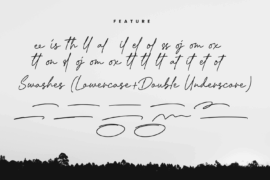 FEATURE
ee is th ll al il el of ss oj om ox
tt on of oj om ox tt ll lt at it et ot
Swashes (Lowercase+Double Underscore)